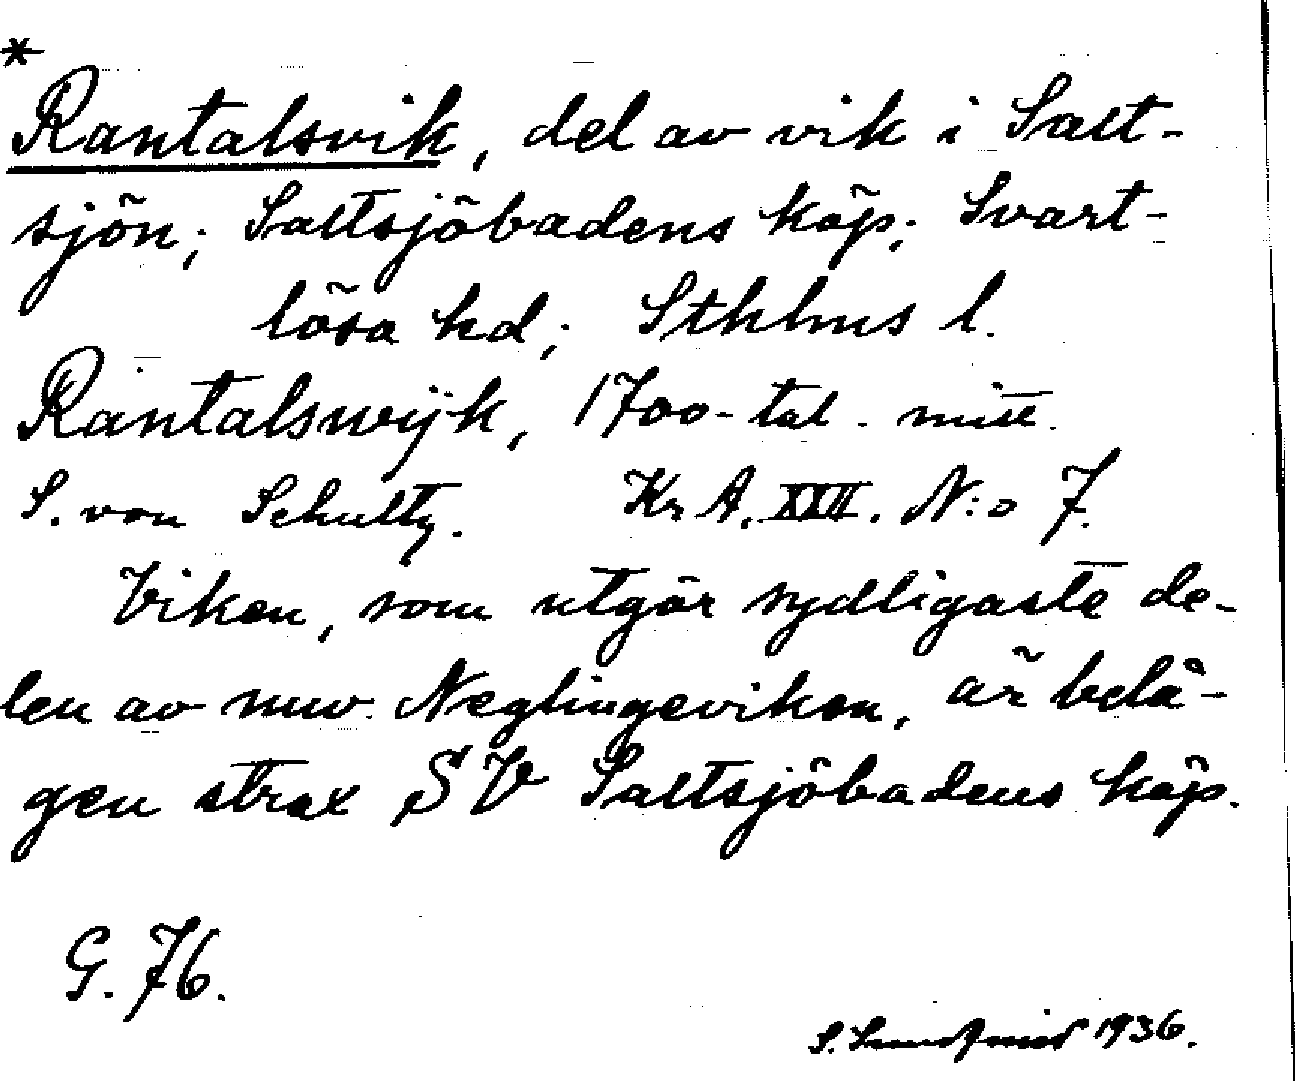 *
Rantalsvik, del av vik i Salt-
sjön; Saltsjöbadens köp; Svart-
lösa hd; Sthlms l.
Rantalswijk, 1700-tal. mitt.
S. von Schultz. Kr A. XXII. N:o 7.
Viken, som utgör sydligaste de-
len av nuv. Neglingeviken, är belä-
gen strax SV Saltsjöbadens köp.
G. 76.
S. 1936.